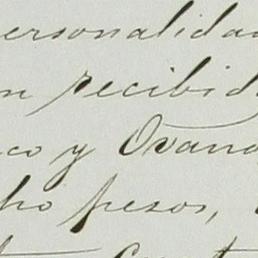 ersonalida
n recibid
co y Ovand
ho pesos,